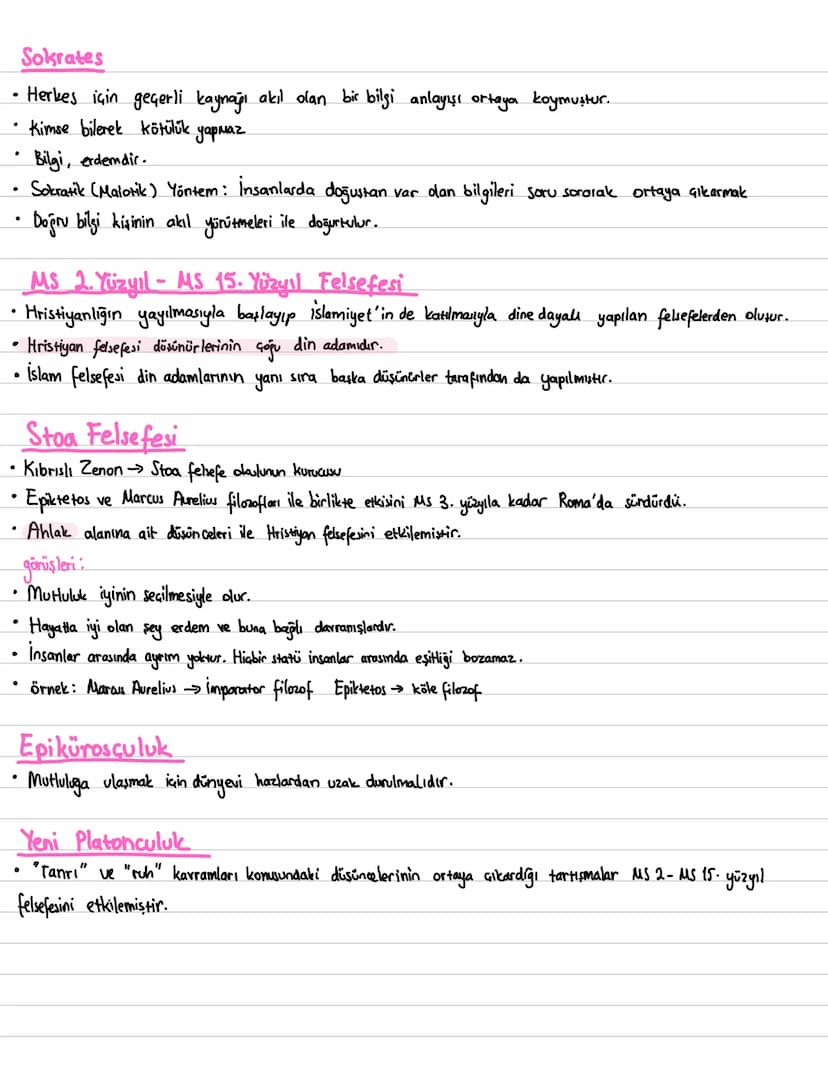 Sokrates
• Herkes için geçerli kaynağı akıl olan bir bilgi anlayışı ortaya koymuştur.
• Kimse bilerek kötülük yapmaz
• Bilgi, erdemdir.
• Sokratik (Maiotik) Yöntem: İnsanlarda doğuştan var olan bilgileri soru sorarak ortaya çıkarmak
• Doğru bilgi kişinin akıl yürütmeleri ile doğurtulur.
MS 2. Yüzyıl - MS 15. Yüzyıl Felsefesi
• Hristiyanlığın yayılmasıyla başlayıp İslamiyet'in de katılmasıyla dine dayalı yapılan felsefelerden oluşur.
• Hristiyan felsefesi düşünürlerinin çoğu din adamıdır.
• İslam felsefesi din adamlarının yanı sıra başka düşünürler tarafından da yapılmıştır.
Stoa Felsefesi
• Kıbrıslı Zenon → Stoa felsefe okulunun kurucusu
• Epiktetos ve Marcus Aurelius filozofları ile birlikte etkisini MS 3. yüzyıla kadar Roma'da sürdürdü.
• Ahlak alanına ait düşünceleri ile Hristiyan felsefesini etkilemiştir.
görüşleri:
• Mutluluk iyinin seçilmesiyle olur.
• Hayatta iyi olan şey erdem ve buna bağlı davranışlardır.
• İnsanlar arasında ayrım yoktur. Hiçbir statü insanlar arasında eşitliği bozamaz.
• örnek: Marcus Aurelius → imparator filozof Epiktetos → köle filozof
Epikürosçuluk
• Mutluluğa ulaşmak için dünyevi hazlardan uzak durulmalıdır.
Yeni Platonculuk
• "Tanrı" ve "ruh" kavramları konusundaki düşüncelerinin ortaya çıkardığı tartışmalar MS 2- MS 15. yüzyıl
felsefesini etkilemiştir.